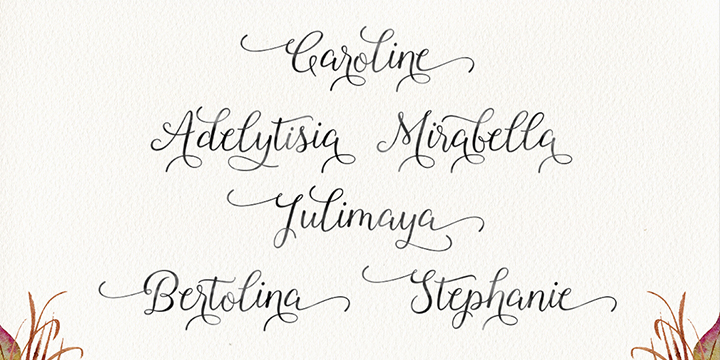 Caroline
Adelytisia Mirabella
Julimaya
Bertolina Stephanie